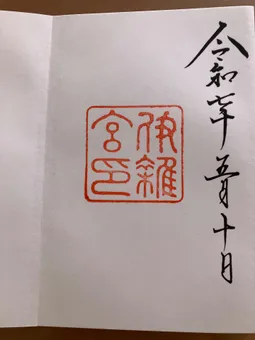 令和七年五月十日
伊雜
宮印